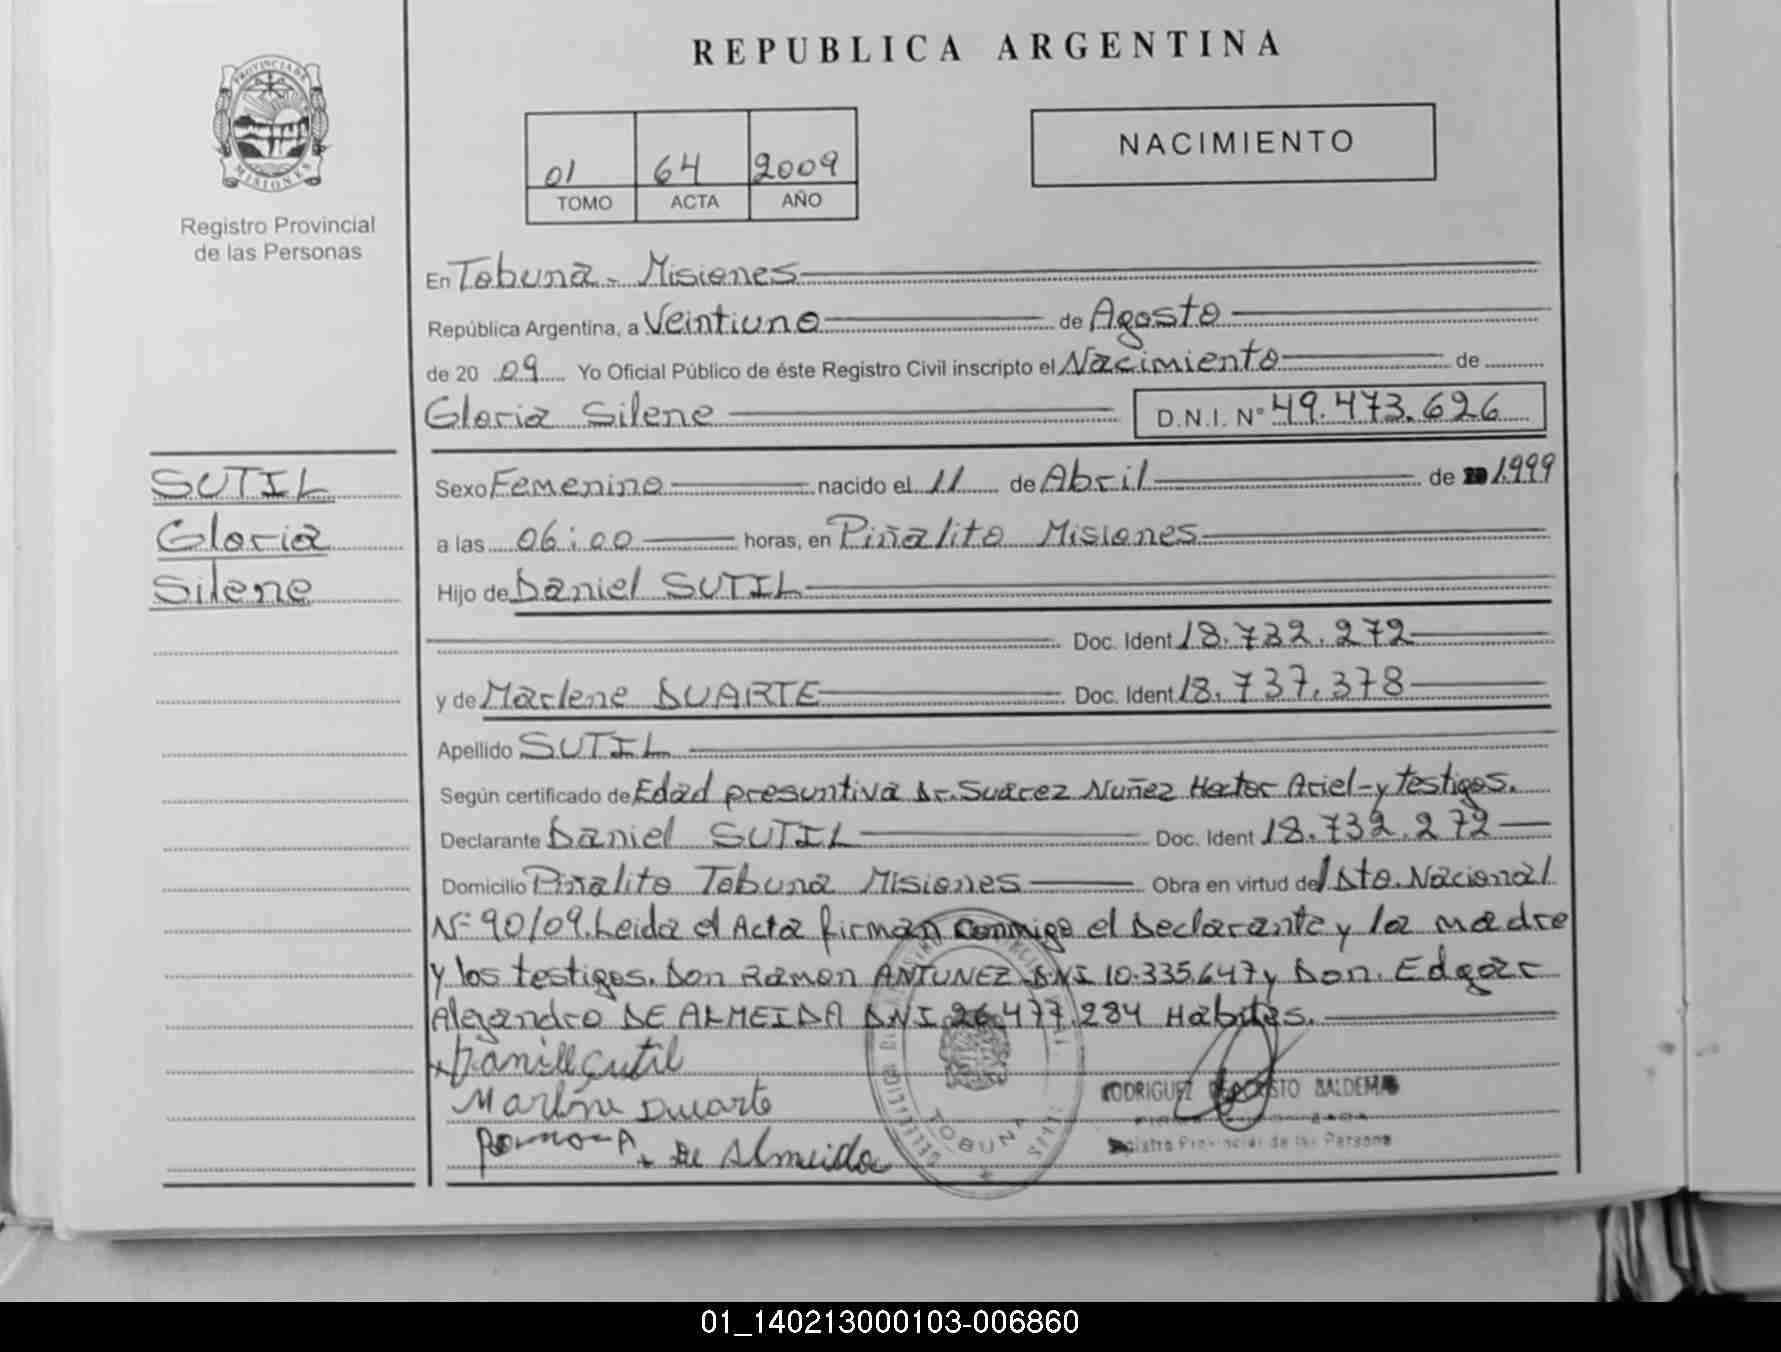 REPUBLICA ARGENTINA
PROVINCIA DE
MISIONES
Registro Provincial
de las Personas
01 64 2009
TOMO ACTA AÑO
NACIMIENTO
En Tobuna - Misiones
República Argentina, a Veintiuno de Agosto
de 20 09 Yo Oficial Público de éste Registro Civil inscripto el Nacimiento de
Gloria Silene D.N.I. N° 49.473.626
SUTIL
Gloria
Silene
Sexo Femenino nacido el 11 de Abril de 1999
a las 06:00 horas, en Piñalito Misiones
Hijo de Daniel SUTIL
Doc. Ident 18.732.272
y de Marlene DUARTE Doc. Ident 18.737.378
Apellido SUTIL
Según certificado de Edad presuntiva Dr. Suarez Nuñez Hector Ariel - y testigos.
Declarante Daniel SUTIL Doc. Ident 18.732.272
Domicilio Piñalito Tobuna Misiones Obra en virtud de Dto. Nacional
N° 90/09. Leida el Acta firman conmigo el Declarante y la madre
y los testigos. Don Ramon ANTUNEZ DNI 10.335.647 y Don. Edgar
Alejandro DE ALMEIDA DNI 26.477.284 Habiles.
Daniel Çutil
Marlene Duarte
De Almeida
TOBUNA
RODRIGUEZ BALDEMAR
Registro Provincial de las Personas
01_140213000103-006860